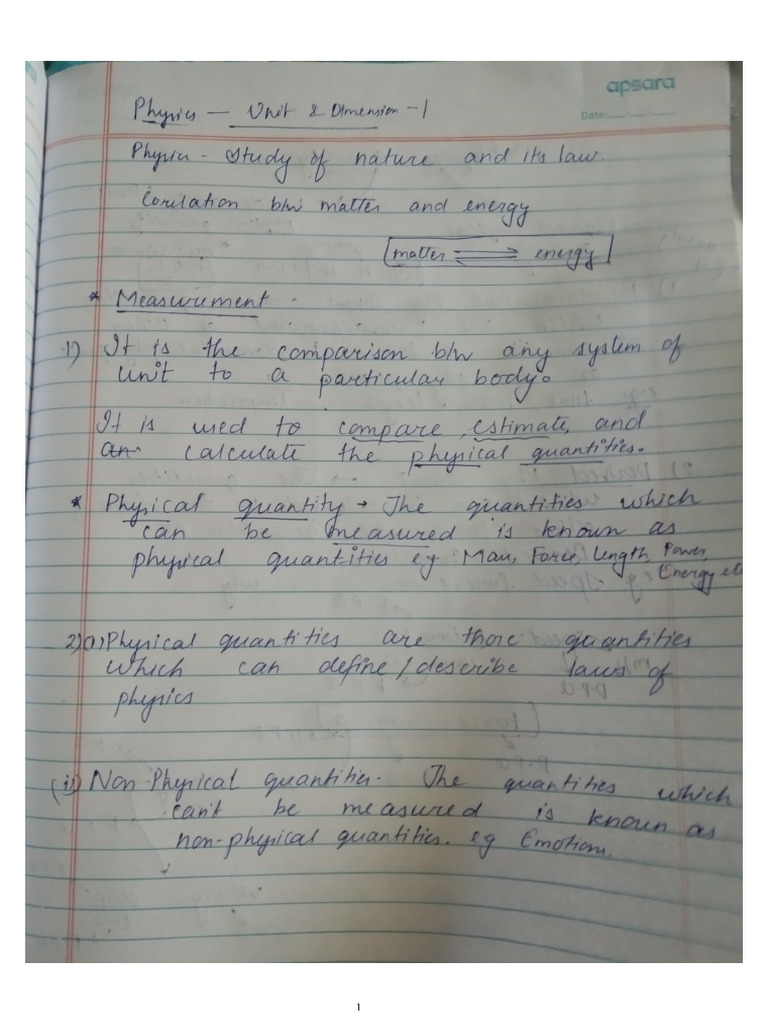 apsara
Date:
Physics — Unit & Dimension -1
Physics - Study of nature and its law.
Corelation b/w matter and energy
matter ⇌ energy
* Measurement
1) It is the comparison b/w any system of
unit to a particular body.
It is used to compare, estimate, and
calculate the physical quantities.
* Physical quantity → The quantities which
can be measured is known as
physical quantities eg: Mass, Force, Length, Power,
Energy etc
2)(i) Physical quantities are those quantities
which can define/describe laws of
physics
(ii) Non-Physical quantities - The quantities which
can't be measured is known as
non-physical quantities. eg Emotions.
1